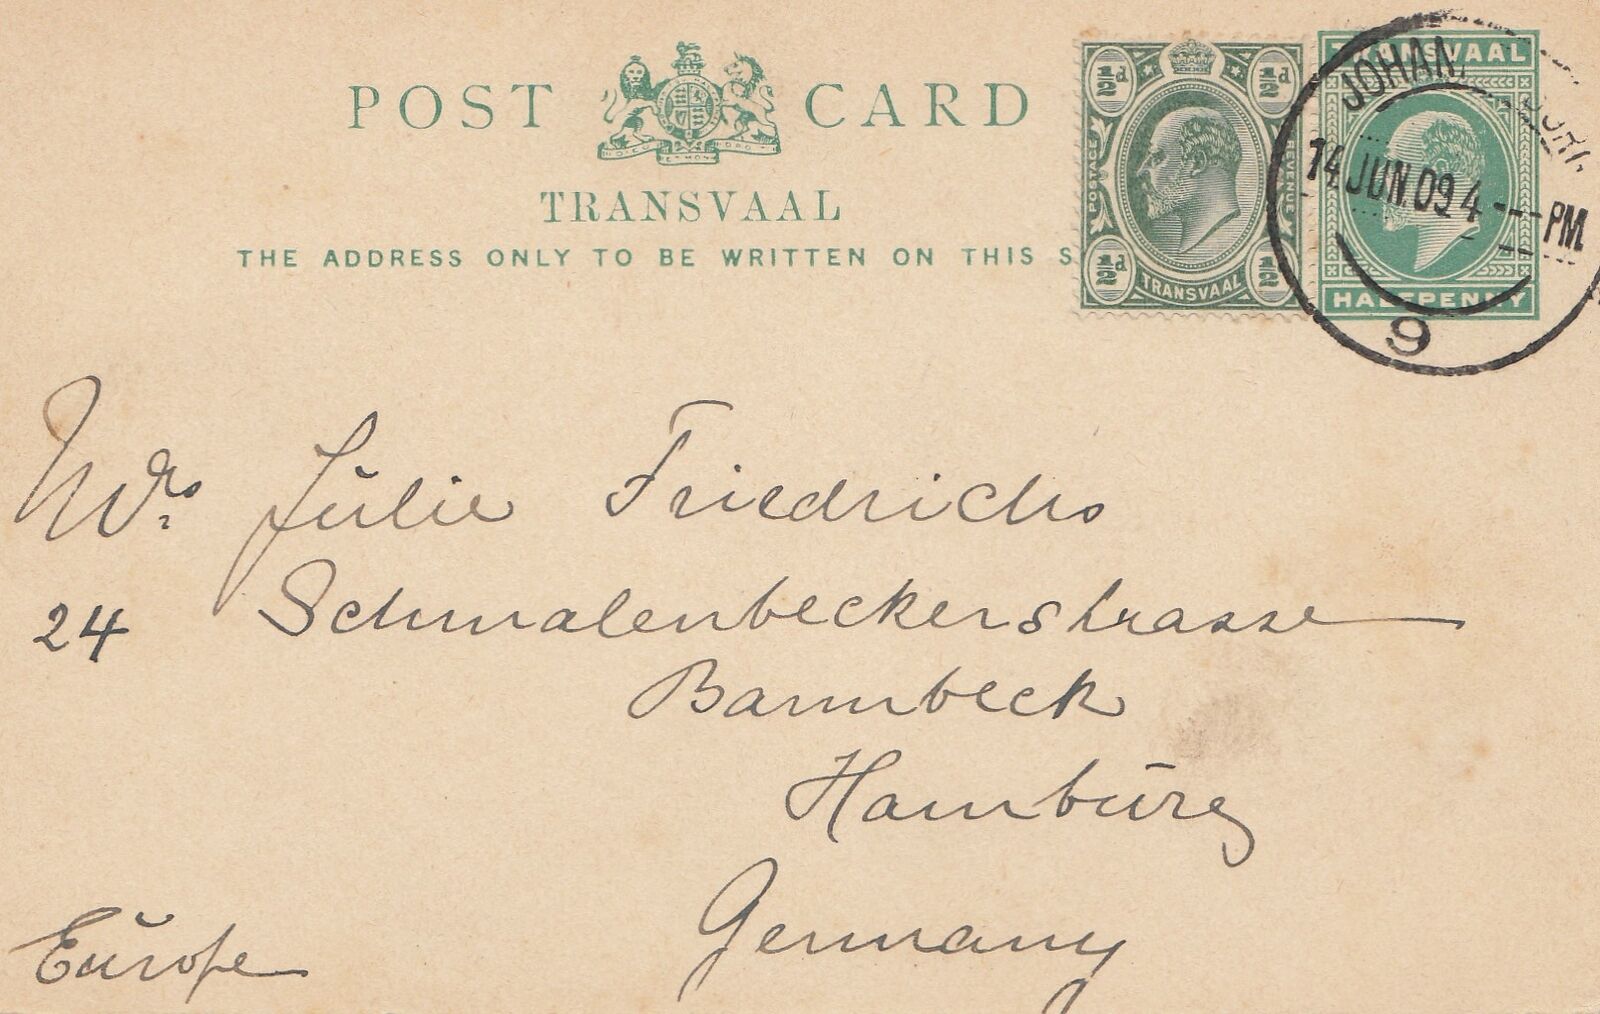 POST CARD
TRANSVAAL
THE ADDRESS ONLY TO BE WRITTEN ON THIS S
½d ½d
POSTAGE REVENUE
½d ½d
TRANSVAAL
TRANSVAAL
HALFPENNY
JOHAN BURG
14 JUN. 09 4 PM
9
Mrs. Julie Friedrichs
24 Schmalenbeckerstrasse
Barmbeck
Hamburg
Germany
Europe